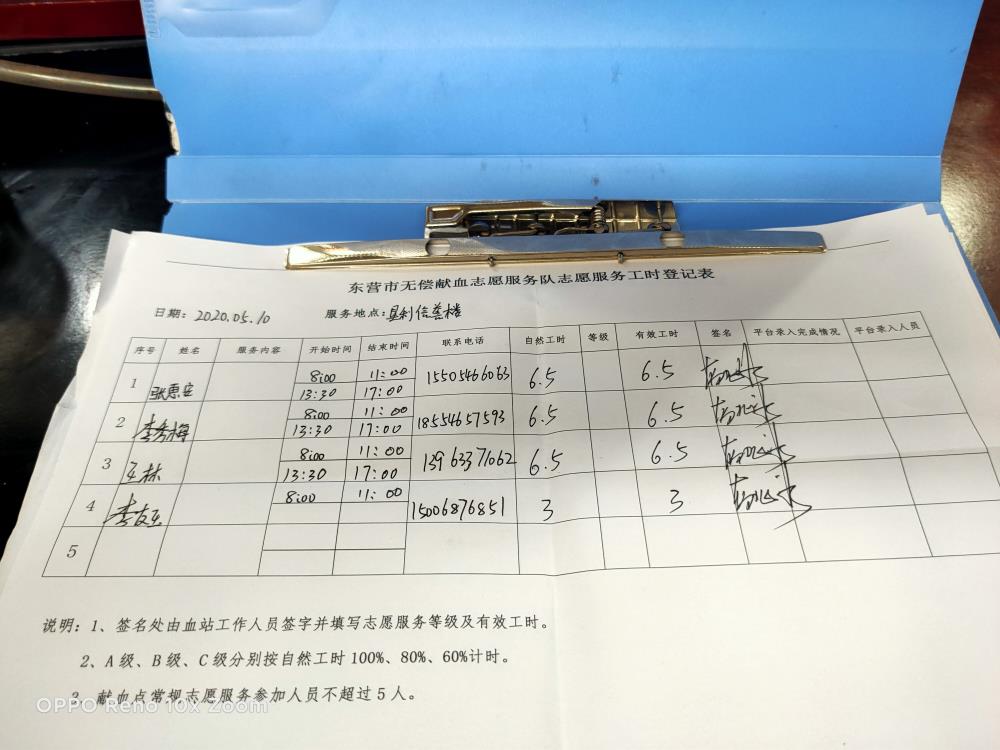 东营市无偿献血志愿服务队志愿服务工时登记表
日期: 2020.05.10 服务地点: 垦利信誉楼
序号 姓名 服务内容 开始时间 结束时间 联系电话 自然工时 等级 有效工时 签名 平台录入完成情况 平台录入人员
1 张惠安 8:00 11:00 15505466063 6.5 6.5
13:30 17:00
2 李秀梅 8:00 11:00 18554657593 6.5 6.5
13:30 17:00
3 王林 8:00 11:00 13963371062 6.5 6.5
13:30 17:00
4 李友玉 8:00 11:00 15006876851 3 3
5
说明: 1、签名处由血站工作人员签字并填写志愿服务等级及有效工时。
2、A级、B级、C级分别按自然工时100%、80%、60%计时。
3、献血点常规志愿服务参加人员不超过5人。
OPPO Reno 10x Zoom